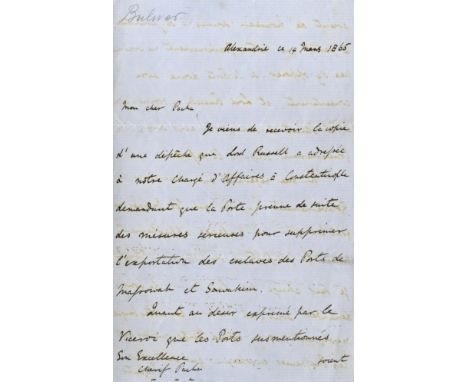 Bulwer
Alexandrie ce 14 Mars 1865
Mon cher Pacha
Je viens de recevoir la copie
d'une dépêche que Lord Russell a adressée
à notre Chargé d'Affaires à Constantinople
demandant que la Porte prenne de suite
des mesures sérieuses pour supprimer
l'exportation des esclaves des Ports de
Massowah et Sawakim.
Quant au désir exprimé par le
Viceroi que les Ports susmentionnés
Son Excellence
soient
Cherif Pacha